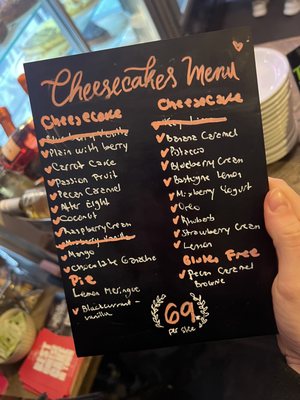 Cheesecakes Menu
Cheesecake
Plain with berry
Carrot Cake
Passion Fruit
Pecan Caramel
After Eight
Coconut
Raspberry Cream
Mango
Chocolate Ganache
Pie
Lemon Meringue
Blackcurrant -
vanilla
Cheesecake
Key Lime
Banana Caramel
Pistacio
Blueberry Cream
Bastogne Lemon
Mixberry Yogurt
Oreo
Rhubarb
Strawberry Cream
Lemon
Gluten Free
Pecan Caramel
Brownie
69
per slice